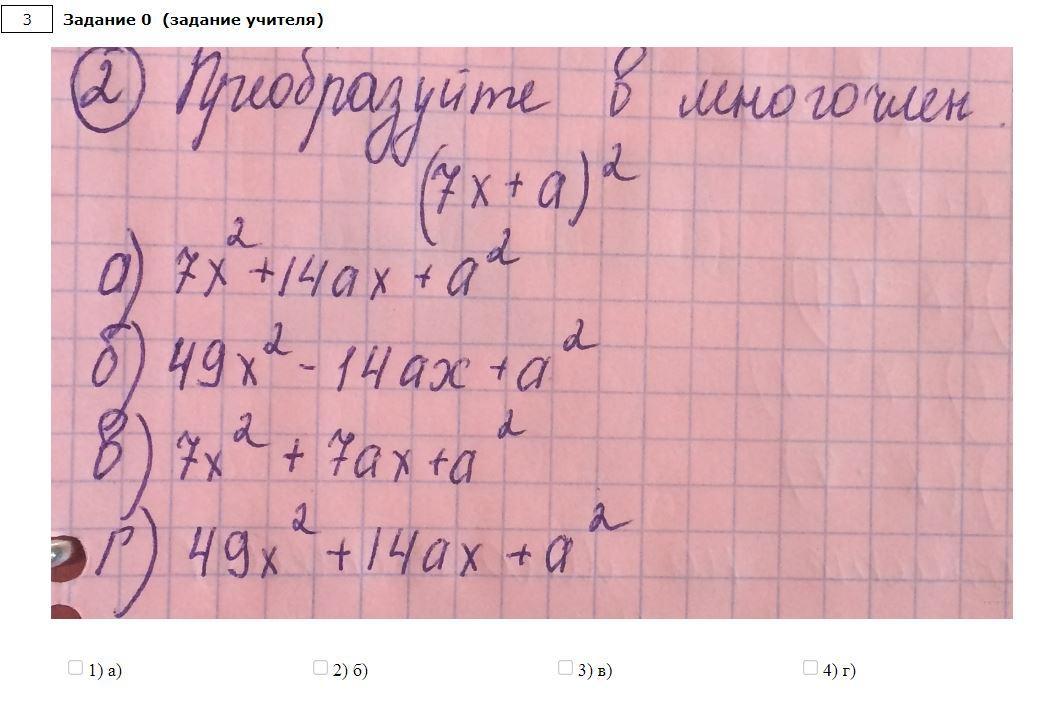 3 Задание 0 (задание учителя)
2) Преобразуйте в многочлен.
(7x + a)²
а) 7x² + 14ax + a²
б) 49x² - 14ax + a²
в) 7x² + 7ax + a²
г) 49x² + 14ax + a²
1) а) 2) б) 3) в) 4) г)